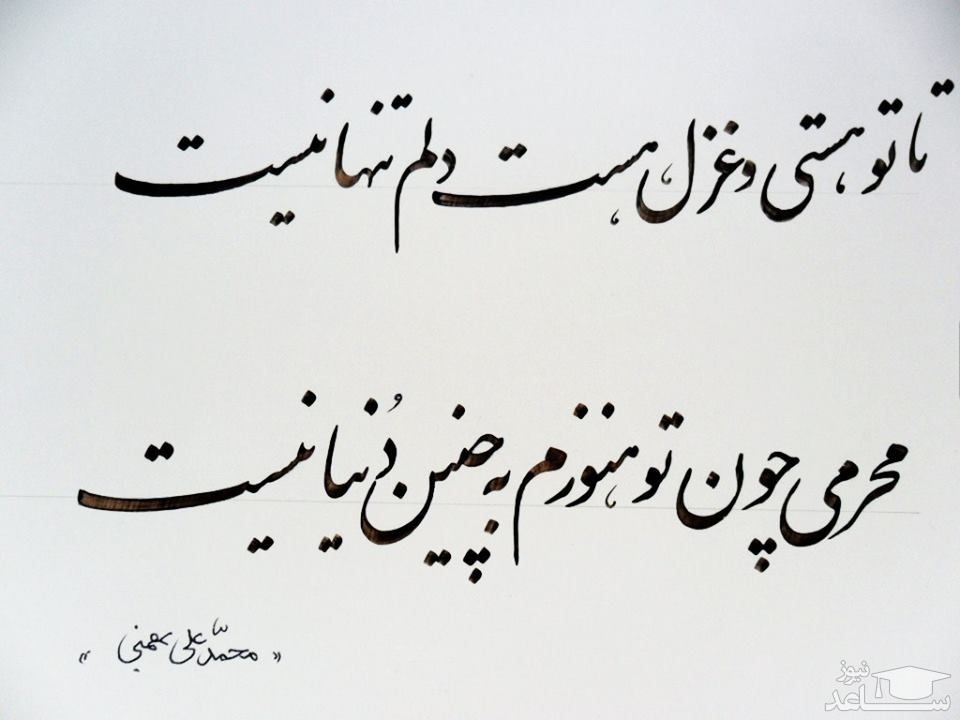 تا تو هستی و غزل هست دلم تنها نیست
محرمی چون تو هنوزم به چنین دُنیا نیست
« محمّد علی بهمنی »
نیوز
ساعد